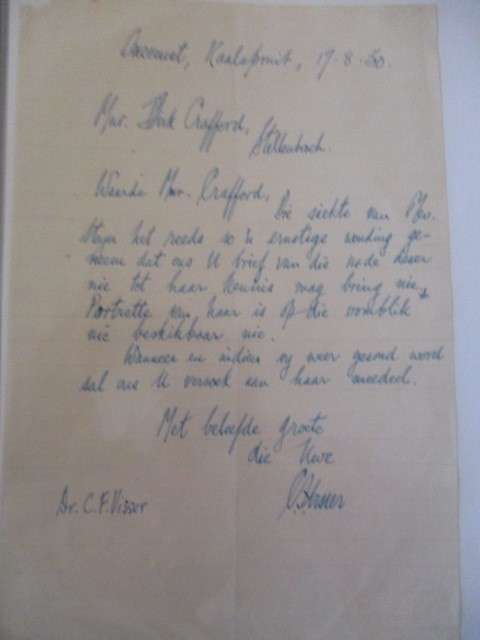 Onzerust, Kaalspruit, 17-8-50.
Mnr. Dirk Crafford,
Stellenbosch.
Waarde Mnr. Crafford,
Die siekte van Mev.
Steyn het reeds so 'n ernstige wending ge-
neem dat ons U brief van die
nie tot haar kennis mag bring nie,
Portrette van haar is op die oomblik
nie beskikbaar nie.
Wanneer en indien sy weer gesond word
sal ons U versoek aan haar meedeel.
Met beleefde groete
die Uwe
CFVisser
Dr. C.F. Visser